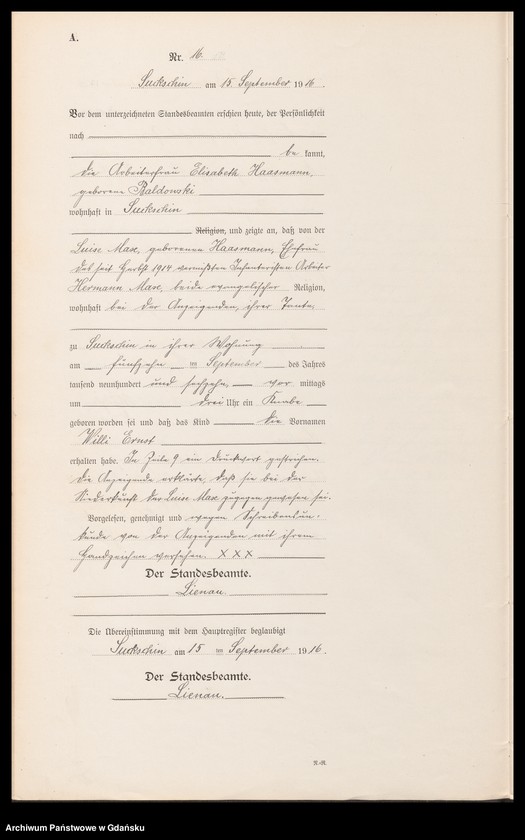 A.
Nr. 16.
Suckschin am 15. September 1916.
Vor dem unterzeichneten Standesbeamten erschien heute, der Persönlichkeit
nach
be kannt,
die Arbeiterfrau Elisabeth Haasmann,
geborene Baldowski
wohnhaft in Suckschin
Religion, und zeigte an, daß von der
Luise Max, geborenen Haasmann, Ehefrau
des seit Herbst 1914 vermißten Infanteristen Arbeiter
Hermann Max, beide evangelischer Religion,
wohnhaft bei der Anzeigenden, ihrer Tante,
zu Suckschin in ihrer Wohnung
am fünfzehn im September des Jahres
tausend neunhundert und sechzehn vor mittags
um drei Uhr ein Knabe
geboren worden sei und daß das Kind die Vornamen
Willi Ernst
erhalten habe. In Zeile 9 ein Druckwort gestrichen.
Die Anzeigende erklärte, daß sie bei der
Niederkunft der Luise Max zugegen gewesen sei.
Vorgelesen, genehmigt und wegen Schreibensun-
kunde von der Anzeigenden mit ihrem
Handzeichen versehen. X X X
Der Standesbeamte.
Lienau.
Die Übereinstimmung mit dem Hauptregister beglaubigt
Suckschin am 15 im September 1916.
Der Standesbeamte.
Lienau.
R.-R.
Archiwum Państwowe w Gdańsku